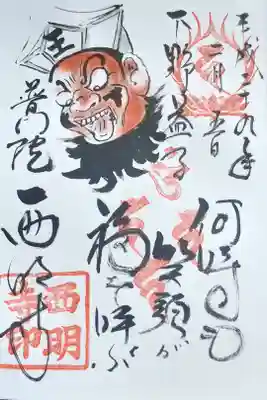 平成二十九年
下野益子
何時も
笑顔が
福を呼ぶ
王
普門院
西明寺
西明
寺印